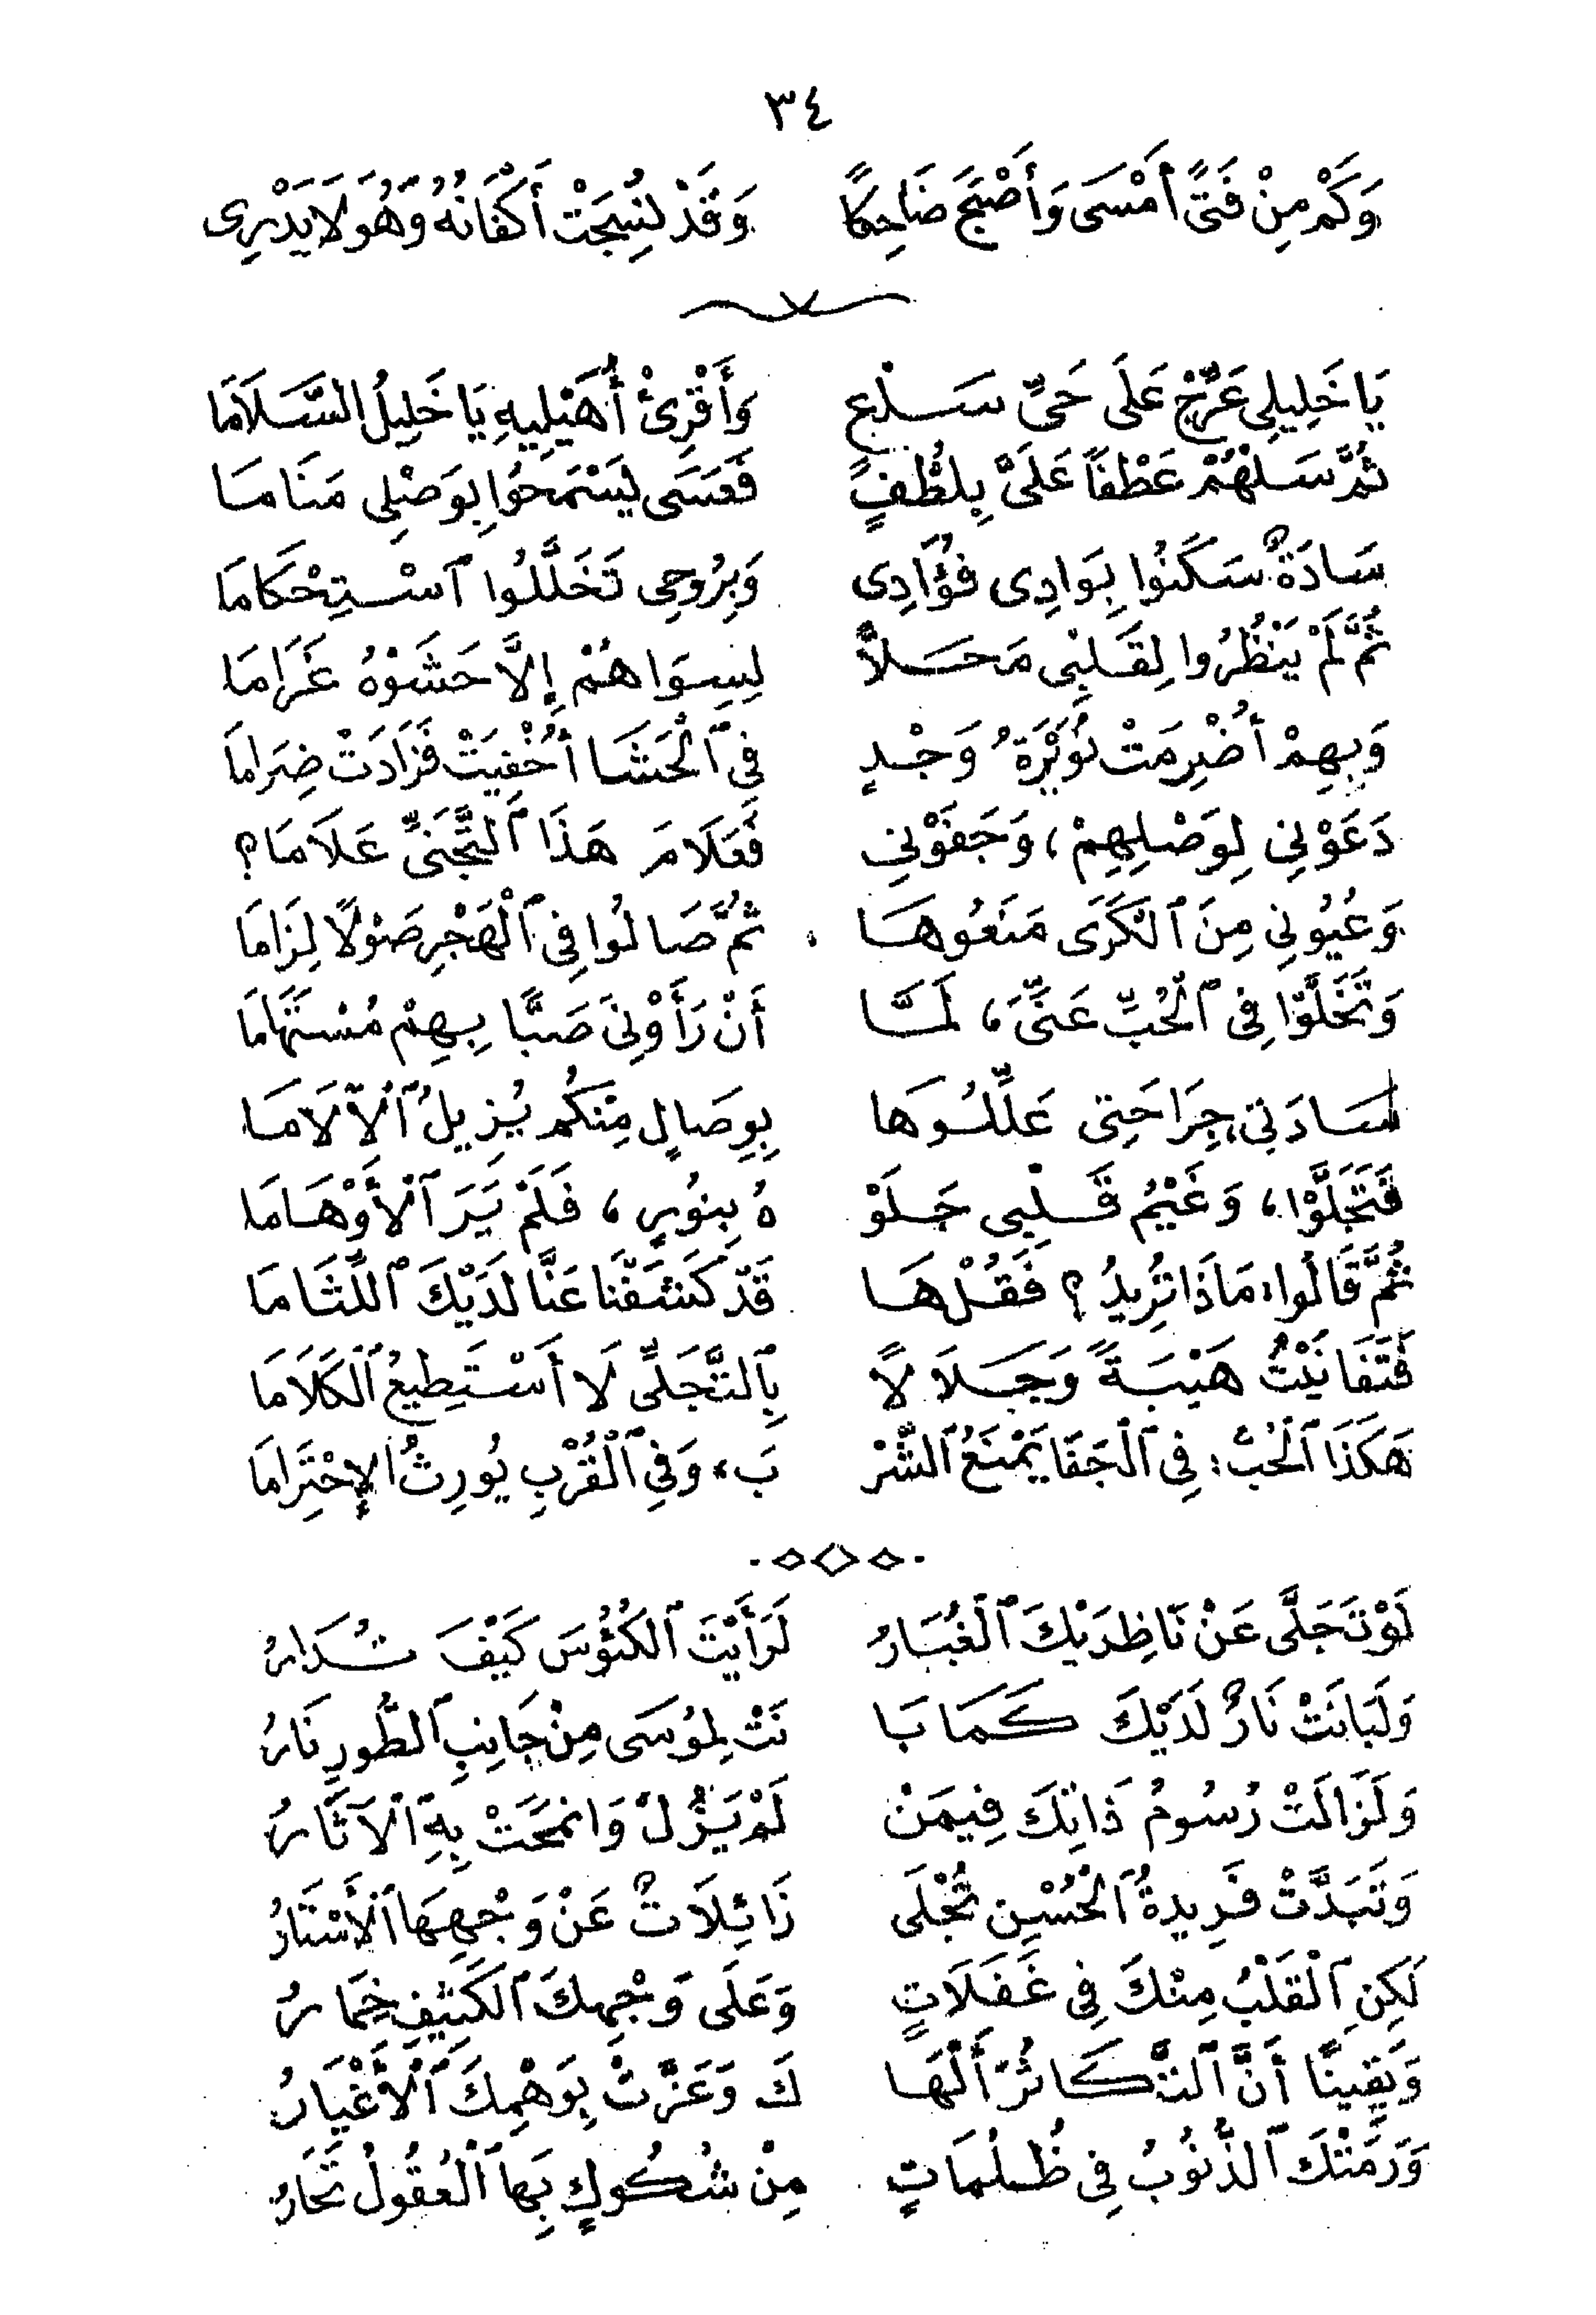 ٣٤
وَكَمْ مِنْ فَتًى أَمْسَى وَأَصْبَحَ ضَاحِكًا وَقَدْ نُسِجَتْ أَكْفَانُهُ وَهُوَ لَا يَدْرِى
يَا خَلِيلِي عَرِّجْ عَلَى حَىِّ سَلْعٍ وَأَقْرِئْ أُهَيْلِيهِ يَا خَلِيلُ السَّلَامَا
ثُمَّ سَلْهُمْ عَطْفًا عَلَىَّ بِلُطْفٍ فَعَسَى يَسْمَحُوا بِوَصْلِى مَنَامَا
سَادَةٌ سَكَنُوا بِوَادِى فُؤَادِى وَبِرُوحِى تَخَلَّلُوا ٱسْتِحْكَامَا
ثُمَّ لَمْ يَنْظُرُوا لِقَلْبِى مَحَلاًّ لِسِوَاهُمْ إِلَّا حَشَوْهُ غَرَامَا
وَبِهِمْ أُضْرِمَتْ نُوَيْرَةُ وَجْدٍ فِى ٱلْحَشَا أُخْفِيَتْ فَزَادَتْ ضِرَامَا
دَعَوْنِى لِوَصْلِهِمْ، وَجَفَوْنِى فَعَلَامَ هَذَا ٱلتَّجَنِّى عَلَامَا؟
وَعُيُونِى مِنَ ٱلْكَرَى مَنَعُوهَا ثُمَّ صَالُوا فِى ٱلْهَجْرِ صَوْلًا لِزَامَا
وَتَخَلَّوْا فِى ٱلْحُبِّ عَنِّى، لَمَّا أَنْ رَأَوْنِىَ صَبًّا بِهِمْ مُسْتَهَامَا
سَادَتِى، جِرَاحَتِى عَلِّلُوهَا بِوِصَالٍ مِنْكُم يُزِيلُ ٱلْآلَامَا
فَتَجَلَّوْا، وَغَيْمُ قَلْبِى جَلَوْ هُ بِنُورٍ، فَلَمْ يَرَ ٱلْأَوْهَامَا
ثُمَّ قَالُوا: مَاذَا تُرِيدُ؟ فَقُلْهَا قَدْ كَشَفْنَا عَنَّا لَدَيْكَ ٱللِّثَامَا
فَتَفَانَيْتُ هَيْبَةً وَجَلَالًا بِٱلتَّجَلِّى لَا أَسْتَطِيعُ ٱلْكَلَامَا
هَكَذَا ٱلْحُبُّ: فِى ٱلْجَفَا يَمْنَعُ ٱلشُّرْ بَ، وَفِى ٱلْقُرْبِ يُورِثُ الإِحْتِرَامَا
لَوْ تَجَلَّى عَنْ نَاظِرَيْكَ ٱلْغُبَارُ لَرَأَيْتَ ٱلْكُئُوسَ كَيْفَ تُدَارُ
وَلَبَانَتْ نَارٌ لَدَيْكَ كَمَا بَا نَتْ لِمُوسَى مِنْ جَانِبِ ٱلطُّورِ نَارُ
وَلَزَالَتْ رُسُومُ ذَاتِكَ فِيمَنْ لَمْ يَزُلْ وَانْمَحَتْ بِهِ ٱلْآثَارُ
وَتَبَدَّتْ فَرِيدَةُ ٱلْحُسْنِ تُجْلَى زَائِلَاتٌ عَنْ وَجْهِهَا ٱلْأَسْتَارُ
لَكِنِ ٱلْقَلْبُ مِنْكَ فِى غَفَلَاتٍ وَعَلَى وَجْهِكَ ٱلْكَثِيفِ خِمَارُ
وَيَقِينًا أَنَّ ٱلتَّكَاثُرَ أَلْهَا كَ وَعَزَّتْ بِوَهْمِكَ ٱلْأَغْيَارُ
وَرَمَتْكَ ٱلذُّنُوبُ فِى ظُلُمَاتٍ مِنْ شُكُوكٍ بِهَا ٱلْعُقُولُ تَحَارُ